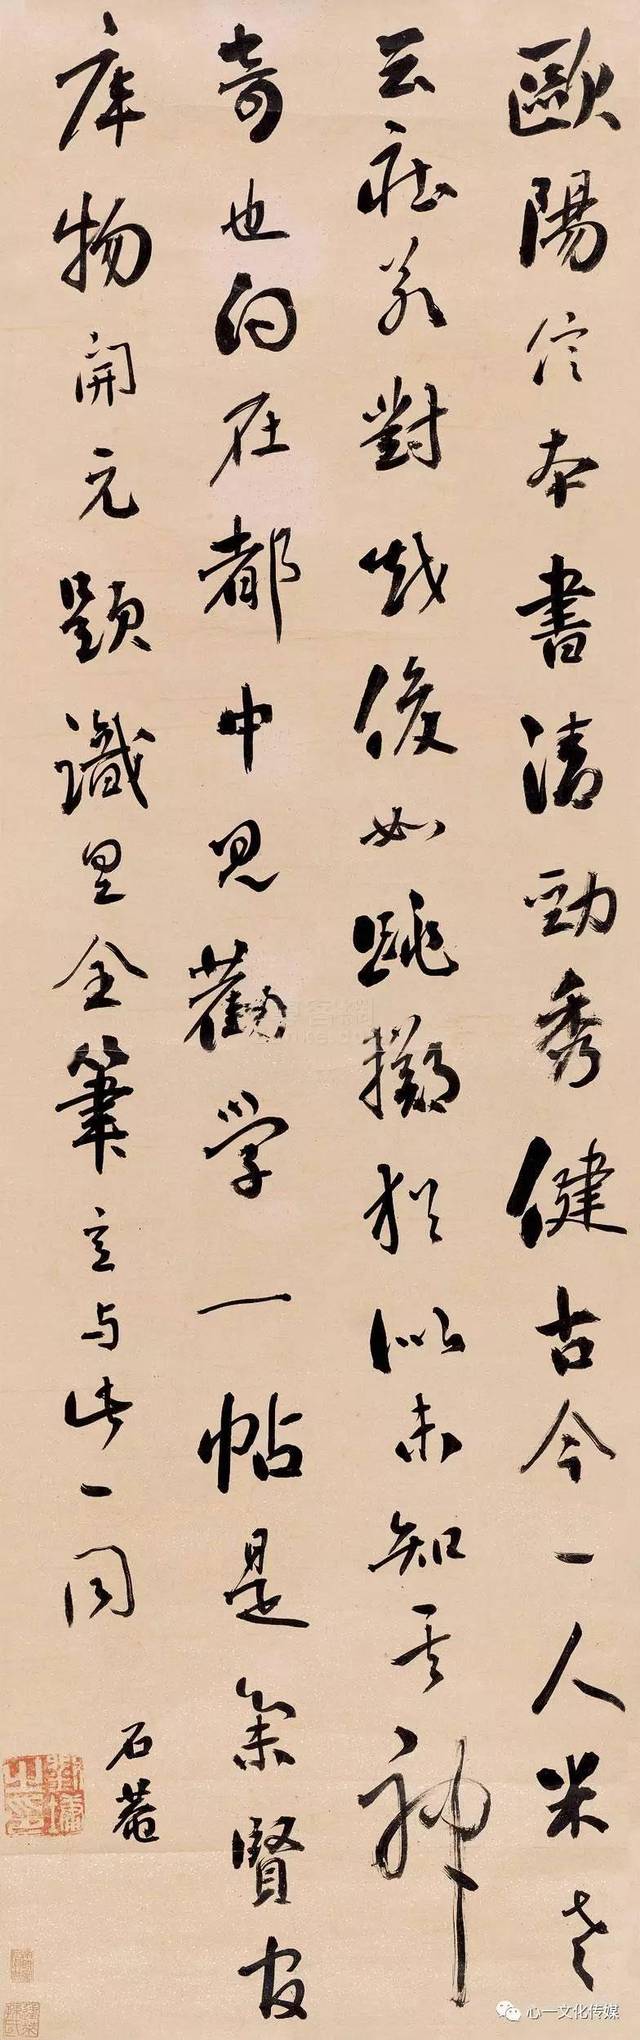 歐陽信本書清勁秀健古今一人米老
云莊若對越俊如跳擲猶似未知其神
奇也向在都中見勸學一帖是集賢官
庫物開元題識具全筆意与此一同
石菴
劉墉之印
心一文化传媒